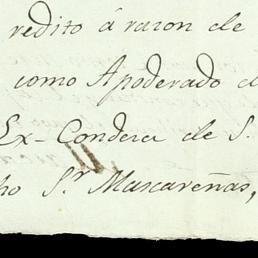 redito á razon de
como Apoderado d
Ex-Condera de S.
ho Sr. Mascareñas,